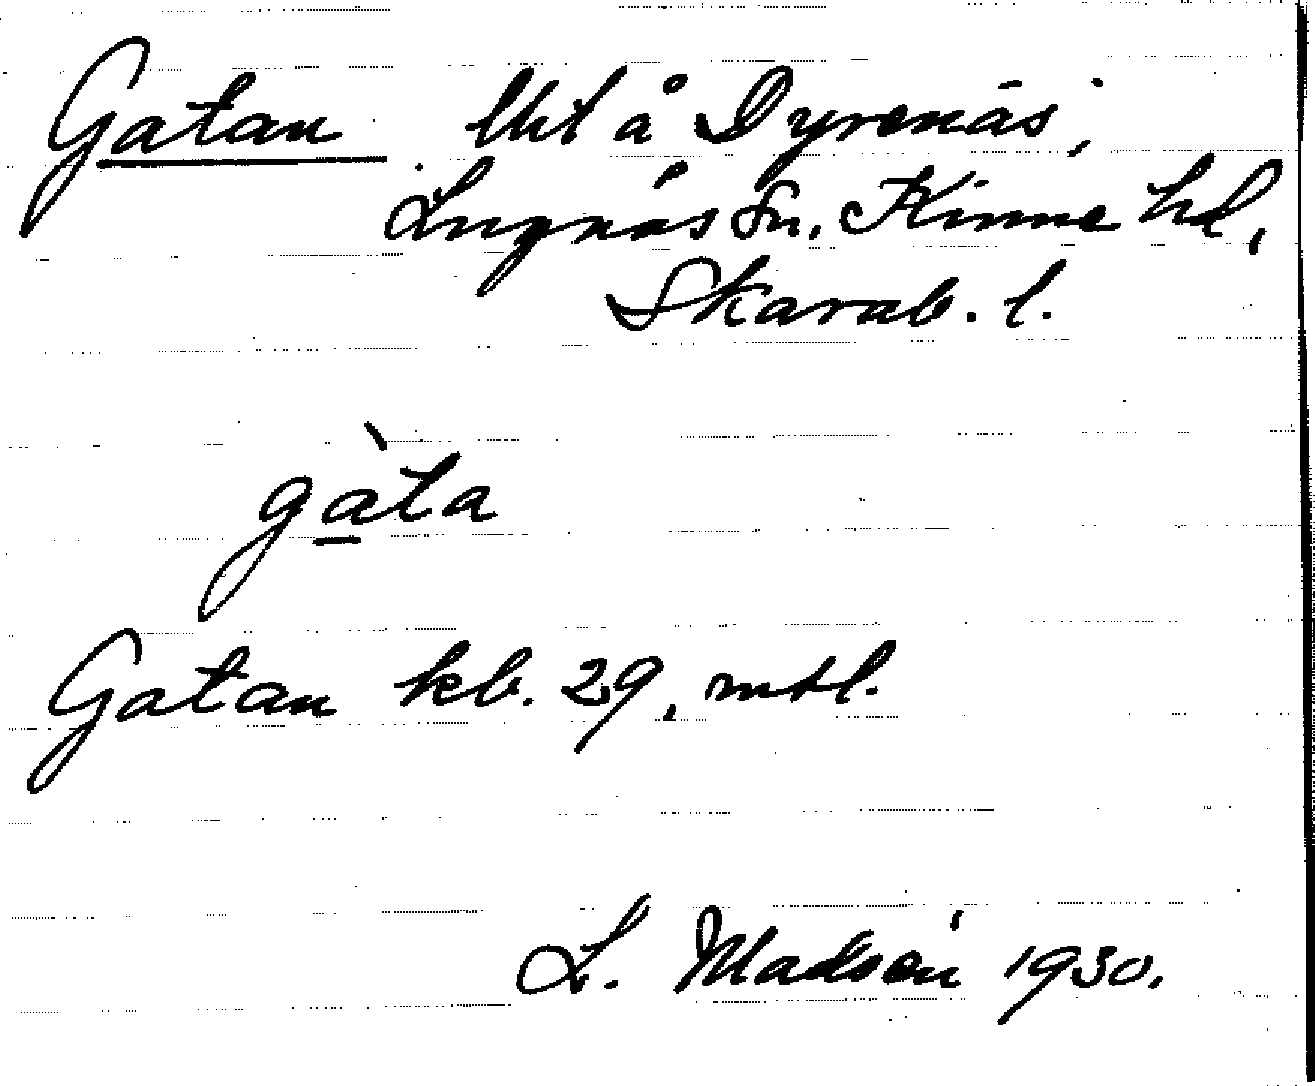 Gatan. Utl å Dyrenäs,
Lugnås sn, Kinne hd,
Skarab. l.
gàta
Gatan kb. 29, mtl.
L. Madsén 1930.